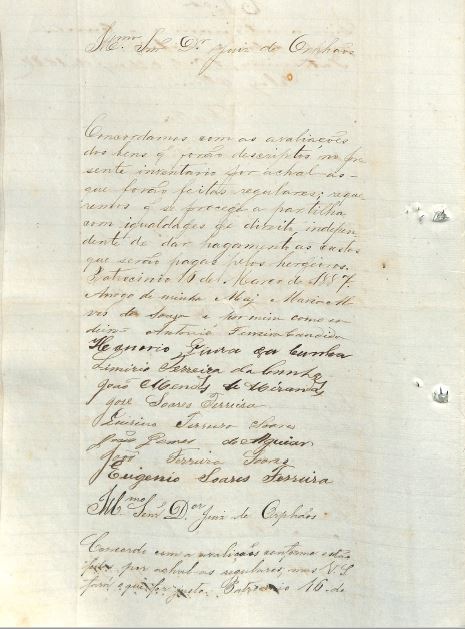 Illmo Snr Dr Juiz de Orphãos
Concordamos com as avaliações
dos bens q̃ forão descriptos no pre
sente inventario por achal-as
que forão feitas regulares; reque
remos q̃ se proceda a partilha
com igualdades de direito, indepen
dente de dar pagamento as custas
que serão pagas pelos herdeiros.
Patrocinio 16 de Março de 1887.
Arogo de minha Maj Maria
de Souza e por mim como er
deiro Antonio Ferreira Candido
Honorio da Cunha
Limirio Ferreira da Cunha
João Mendes de Miranda
José Soares Ferreira
Ferreira Soares
João Gomes de Aguiar
João Ferreira Soares
Eugenio Soares Ferreira
Illmo Senr Dor Juiz de Orphãos
Concordo com a avaliações conforme estão
feitas por achal-as regulares, mas V S
fará o que for justo. Patrocinio 16 de